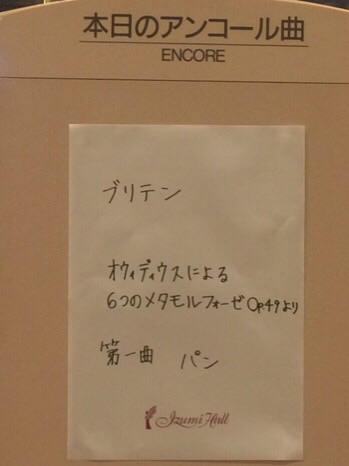 本日のアンコール曲
ENCORE
ブリテン
オウィディウスによる
6つのメタモルフォーゼ Op.49より
第一曲 パン
Izumi Hall